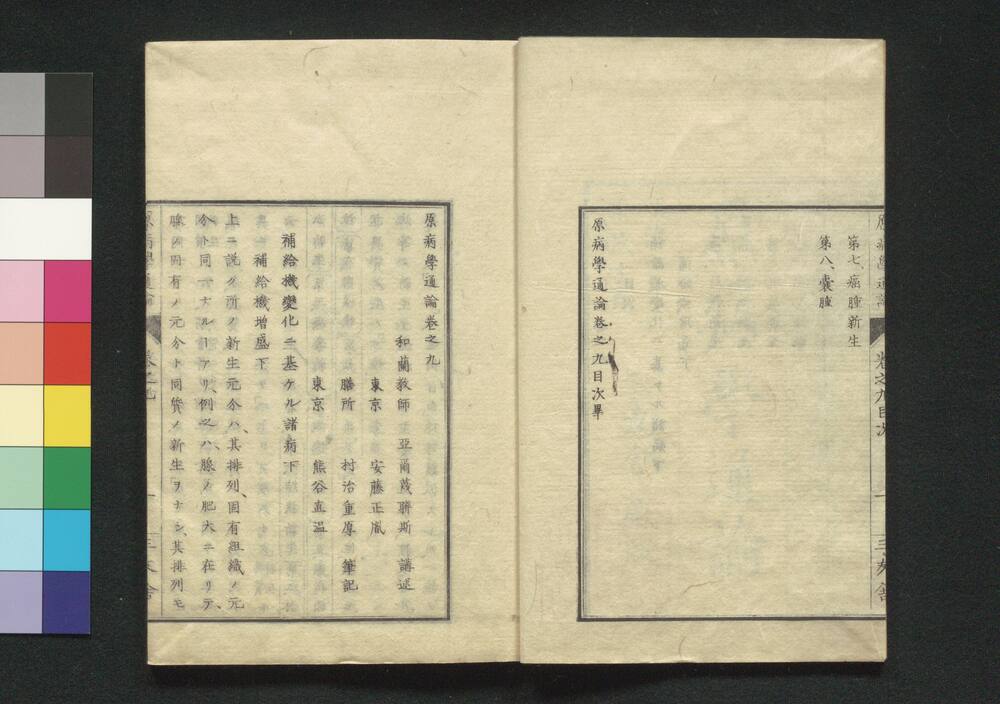 第七、癌腫新生
第八、囊腫
原病學通論卷之九目次畢
卷之九目次
三友舍
原病學通論卷之九
和蘭教師 亞爾蔑聯斯 講述
東京 安藤正胤
膳所 村治重厚 筆記
東京 熊谷直温
補給機變化ニ基ケル諸病下
補給機增盛下
上ニ說ク所ノ新生元分ハ、其排列、固有組織ノ元
分ト同一ナルヿアリ、例之ハ、腺ノ肥大ニ在リテ、
腺ノ固有ノ元分ト同質ノ新生ヲナシ、其排列モ